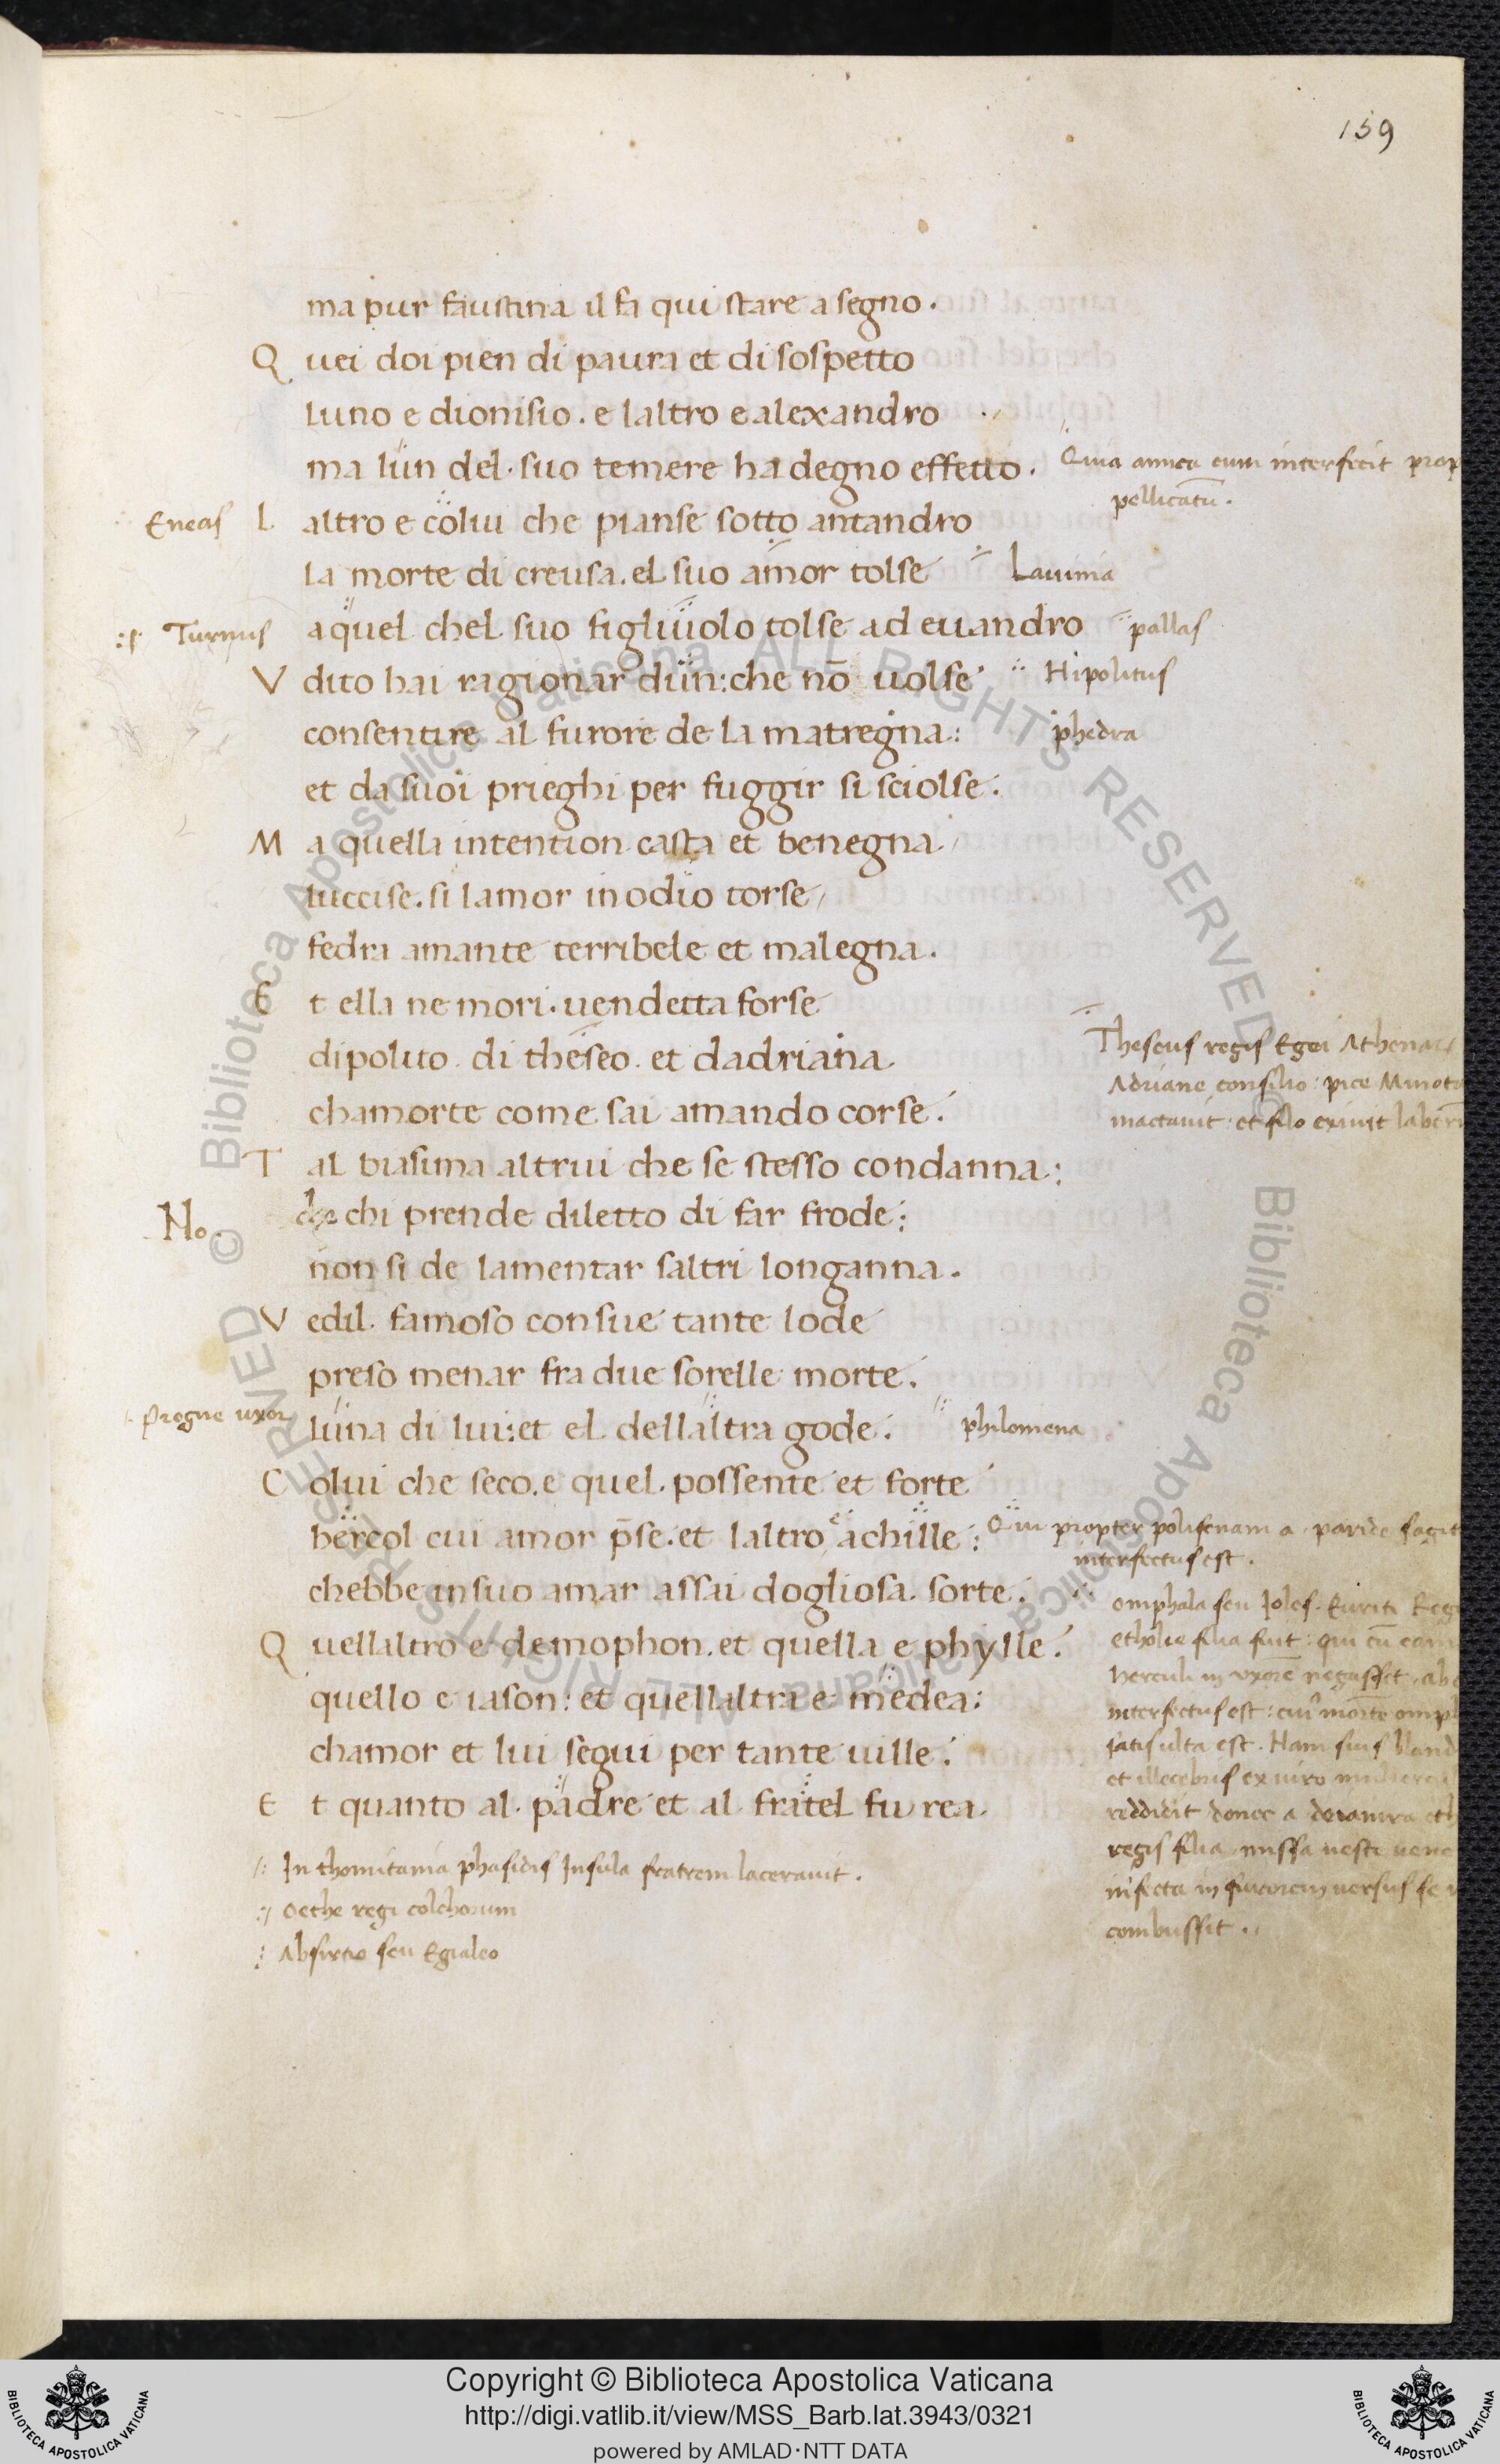 159
ma pur faustina il fa qui stare a segno.
Q uei doi pien di paura et di sospetto
luno e dionisio. e laltro e alexandro
ma lun del. suo temere ha degno effetto.
Quia amica eum interfecit prop
pellicatū.
Eneas
L altro e colui che pianse sotto antandro
la morte di creusa. el suo amor tolse
Lauinia
Turnus
a quel chel suo figliuolo tolse ad euandro
pallas
V dito hai ragionar dun: che nō uolse
Hipolitus
consentire al furore de la matregna:
phedra
et da suoi prieghi per fuggir si sciolse.
M a quella intention casta et benegna
luccise. si lamor in odio torse
fedra amante terribele et malegna.
E t ella ne mori. uendetta forse
dipolito. di theseo. et dadriana
Theseus regis Egei Athenar
Adriane consilio: pice Minot
mactauit: et filo exiuit laber
chamorte come sai amando corse.
T al biasima altrui che se stesso condanna:
No.
che chi prende diletto di far frode:
non si de lamentar saltri longanna.
V edil. famoso con sue tante lode
preso menar fra due sorelle morte.
progne uxor
luna di lui: et el dellaltra gode.
philomena
C olui che seco. e quel. possente et forte
hercol cui amor p̄se. et laltro e achille:
Qui propter polisenam a paride sagit
interfectus est.
chebbe in suo amar assai dogliosa sorte.
Q uellaltro e demophon. et quella e phylle.
quello e iason: et quellaltra e medea:
chamor et lui segui per tante uille.
E t quanto al. padre et al fratel fu rea
omphala seu Joles. Euriti Reg
etholie filia fuit: qui cū eam
herculi in uxorē negasset. ab
interfectus est: mortē omp
Nam suis bland
et illecebris ex uiro
reddidit donec a deianira
regis filia missa ueste uene
infecta in furorem uersus se
combussit.
In thomitania phasidis Insula fratrem lacerauit.
Oethe regi colchorum
Absirtio seu Egialeo
Biblioteca Apostolica Vaticana ALL RIGHTS RESERVED ©
Biblioteca Apostolica Vaticana ALL RIGHTS RESERVED ©
Copyright © Biblioteca Apostolica Vaticana
http://digi.vatlib.it/view/MSS_Barb.lat.3943/0321
powered by AMLAD·NTT DATA
BIBLIOTECA APOSTOLICA VATICANA
BIBLIOTECA APOSTOLICA VATICANA